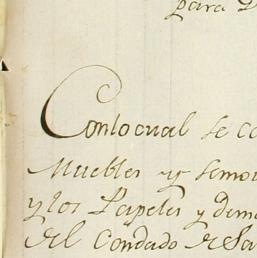 para
Conlocual se
Muebles y semo
y los Papeles y dem
del Condado de Sa